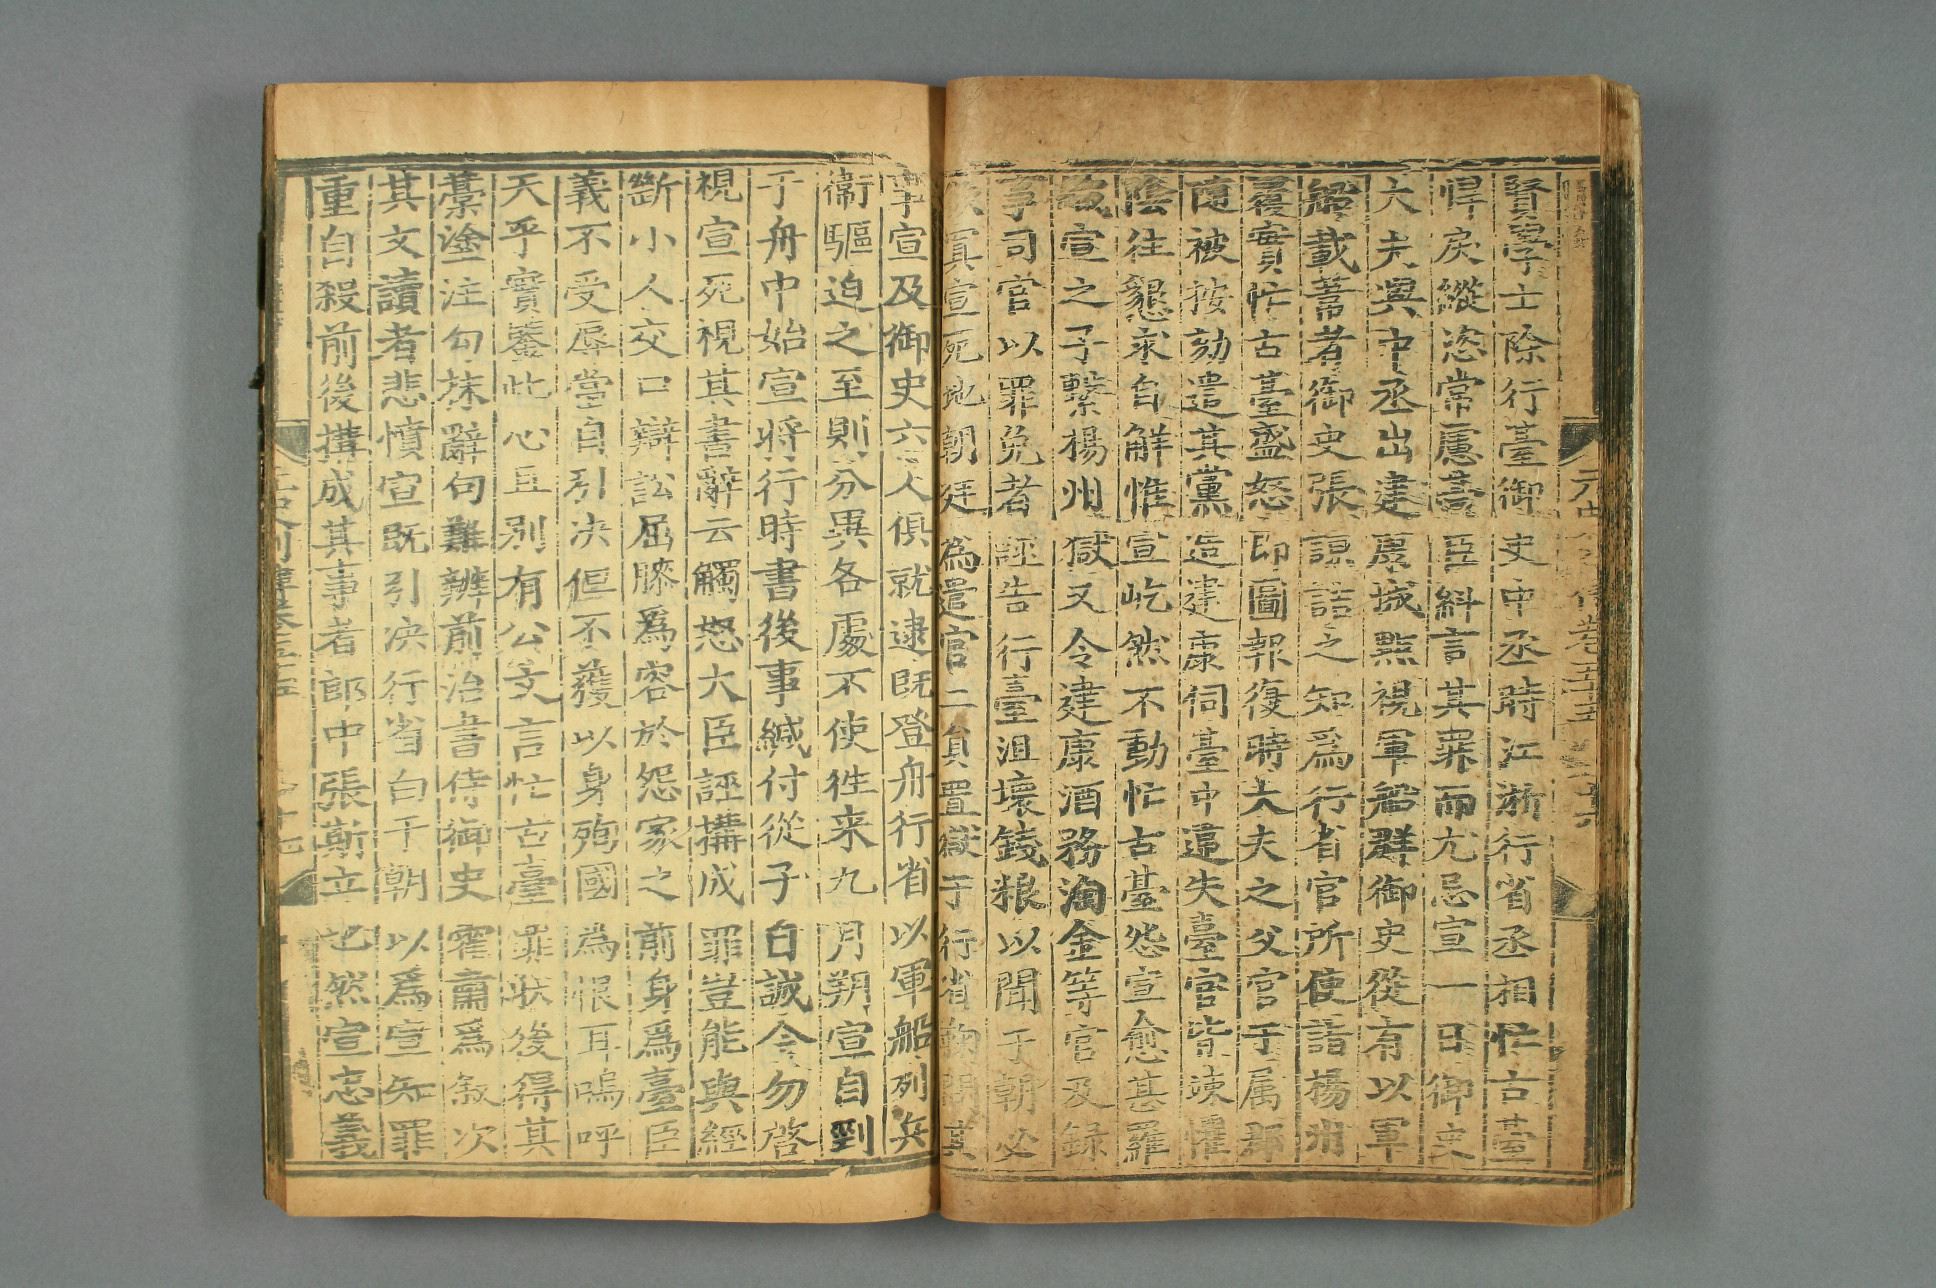 賢學士除行臺御史中丞時江浙行省丞相忙古臺
悍戾縱恣常慮臺臣糾言其罪而尤忌宣一日御史
大夫與中丞出建康城㸃視軍船群御史從有以軍
船載葦者御史張諒詰之知爲行省官所使詣揚州
覆實忙古臺盛怒即圖報復時大夫之父官于属郡
隨被按劾遣其黨造建康伺臺中違失臺官皆竦懼
陰往懇求自解惟宣屹然不動忙古臺怨宣愈甚羅
織宣之子繫揚州獄又令建康酒務淘金等官及録
事司官以罪免者誣告行臺沮壞錢粮以聞于朝必
欲寘宣死地朝廷爲遣官二員置獄于行省鞫問其
事宣及御史六人俱就逮既登舟行省以軍船列兵
衞驅迫之至則分異各處不使徃来九月朔宣自剄
于舟中始宣將行時書後事緘付從子自誠令勿啓
視宣死視其書辭云觸怒大臣誣搆成罪豈能與經
斷小人交口辯訟屈膝爲容於怨家之前身爲臺臣
義不受辱當自引决但不獲以身殉國爲恨耳嗚呼
天乎實鑒此心且别有公文言忙古臺罪狀後得其
藁塗注勾抹辭句難辨前治書侍御史霍肅爲叙次
其文讀者悲憤宣既引决行省白于朝以爲宣知罪
重自殺前後搆成其事者郎中張斯立也然宣忠義